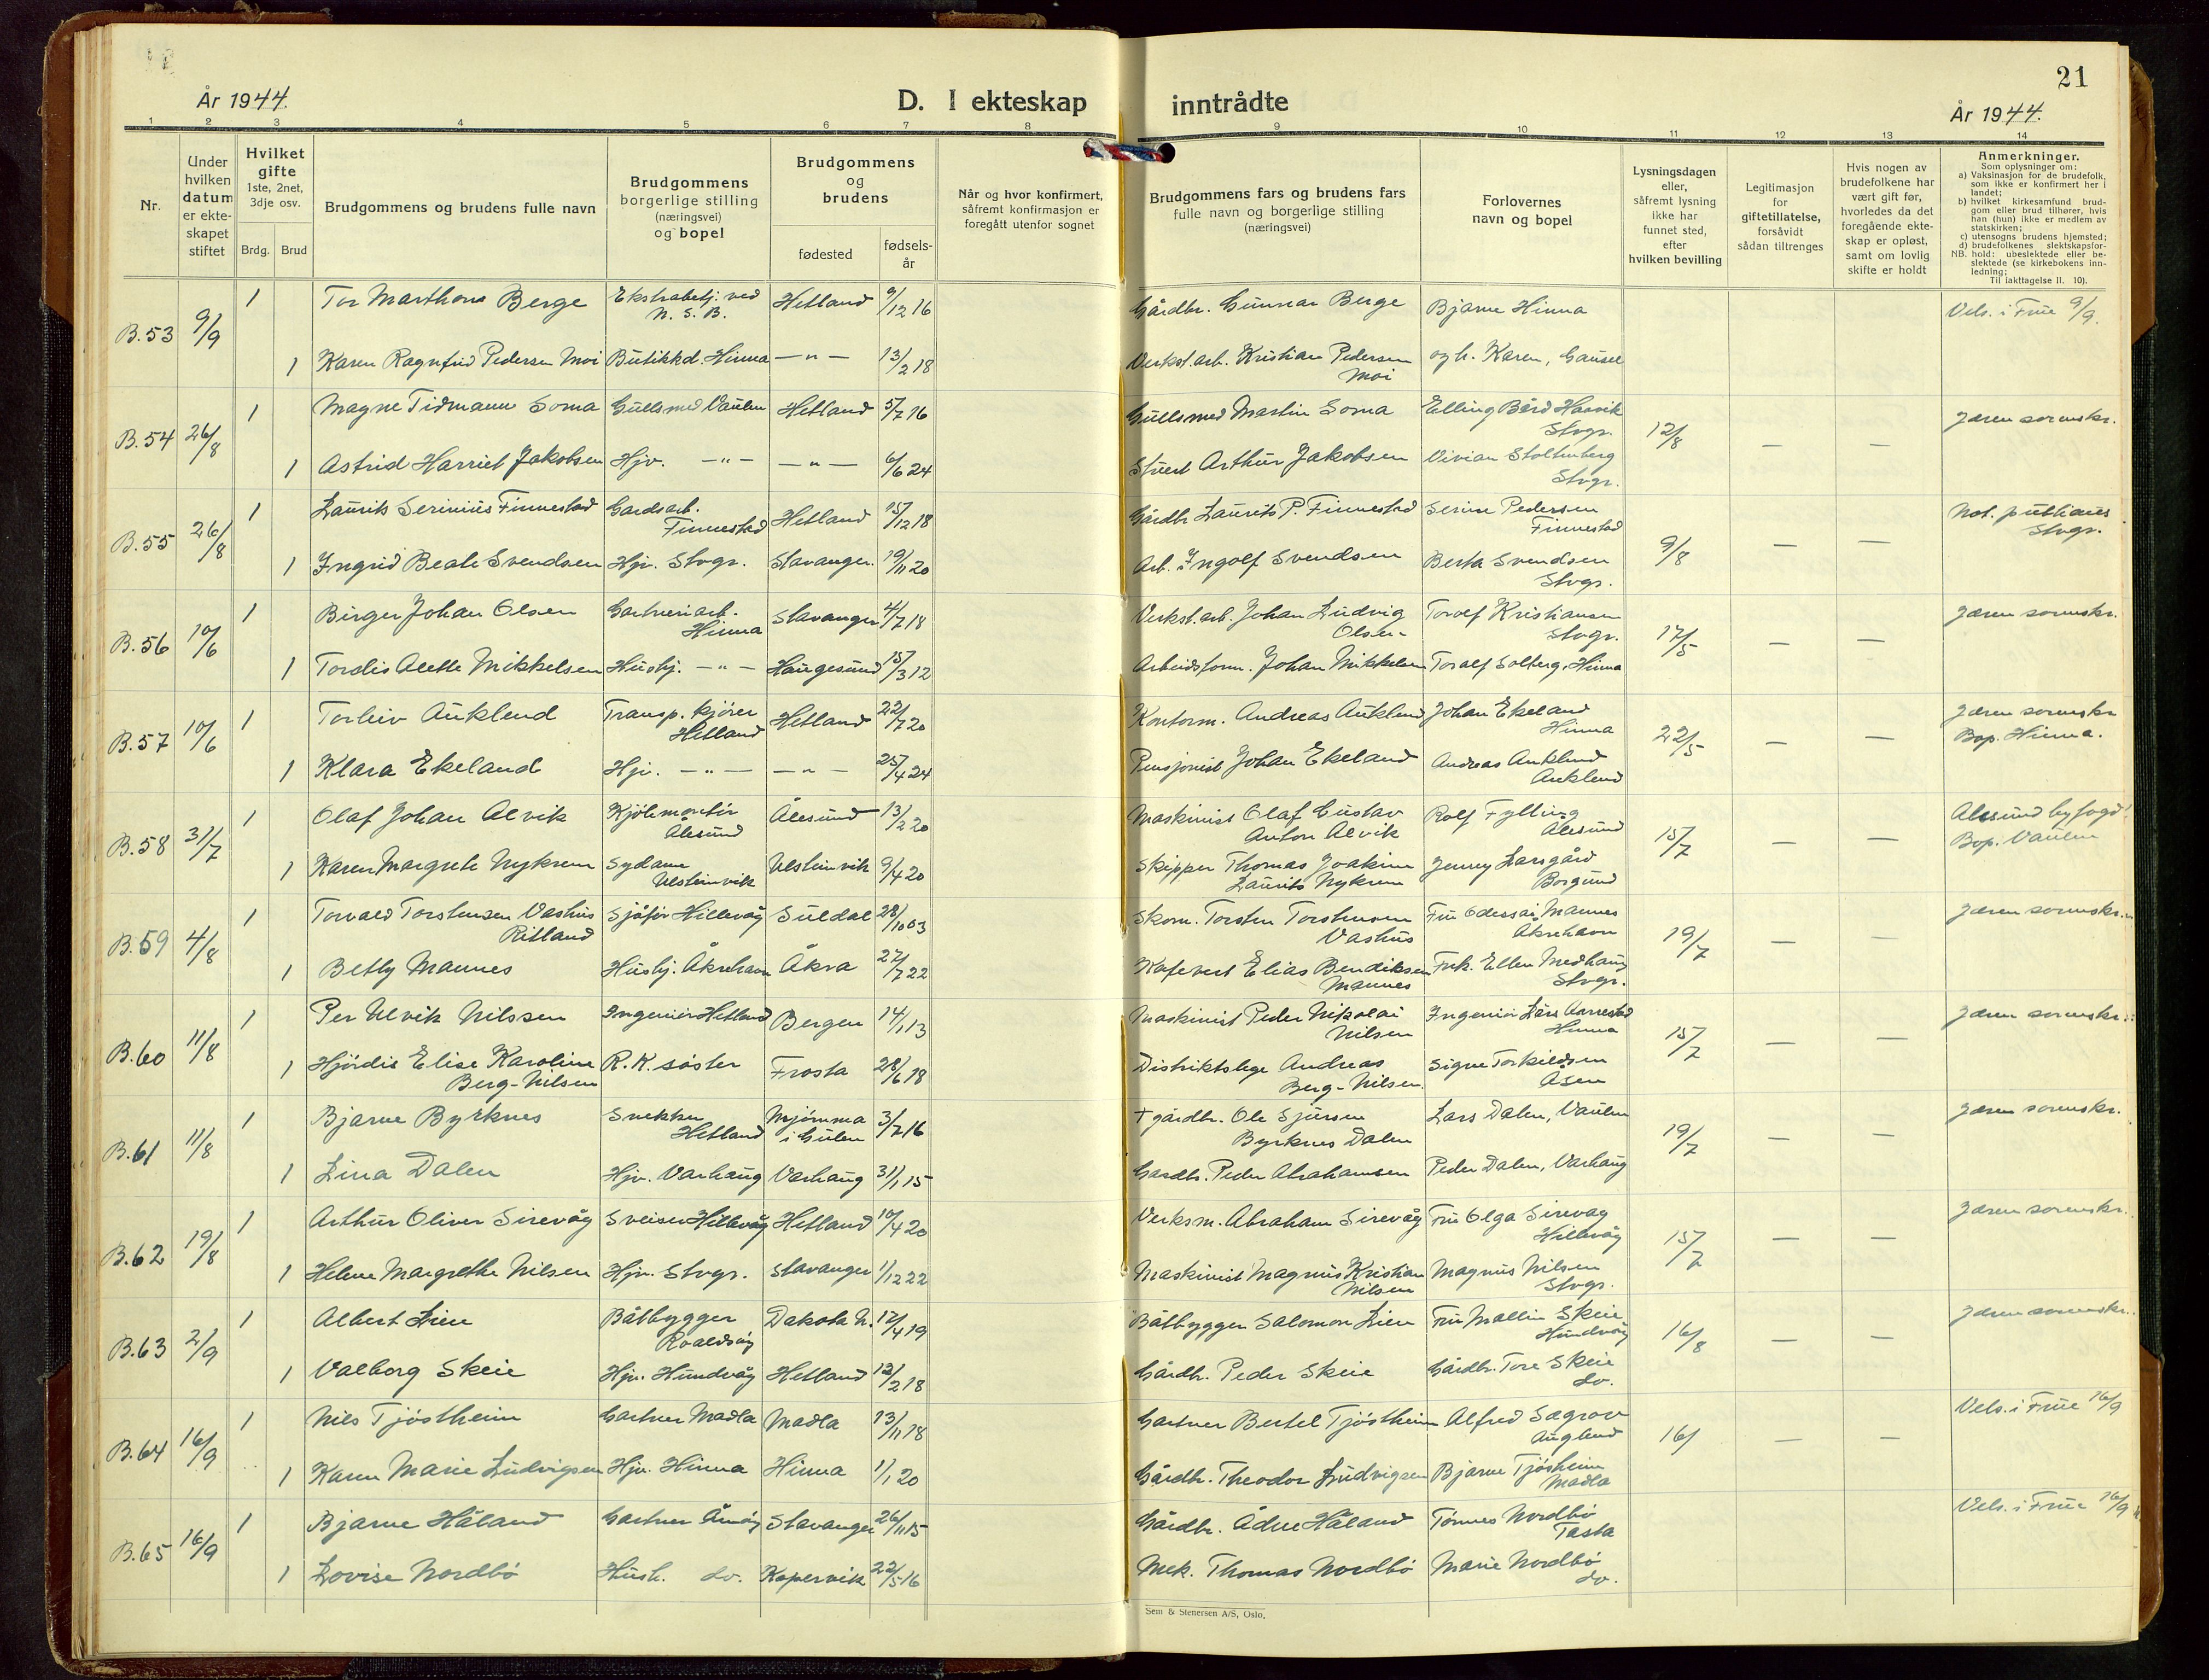 21
År 1944.
D. I ekteskap inntrådte
År 1944.
1 2 3 4 5 6 7 8 9 10 11 12 13 14
Nr.
Under hvilken datum er ekte-skapet stiftet
Hvilket gifte
1ste, 2net, 3dje osv.
Brdg. Brud
Brudgommens og brudens fulle navn
Brudgommens borgerlige stilling (næringsvei) og bopel
Brudgommens og brudens
fødested
fødsels-år
Når og hvor konfirmert, såfremt konfirmasjon er foregått utenfor sognet
Brudgommens fars og brudens fars fulle navn og borgerlige stilling (næringsvei)
Forlovernes navn og bopel
Lysningsdagen eller, såfremt lysning ikke har funnet sted, efter hvilken bevilling
Legitimasjon for giftetillatelse, forsåvidt sådan tiltrenges
Hvis nogen av brudefolkene har vært gift før, hvorledes da det foregående ekte-skap er opløst, samt om lovlig skifte er holdt
Anmerkninger.
Som oplysninger om:
a) Vaksinasjon for de brudefolk, som ikke er konfirmert her i landet;
b) hvilket kirkesamfund brud-gom eller brud tilhører, hvis han (hun) ikke er medlem av statskirken;
c) utensogns brudens hjemsted;
d) brudefolkenes slektskapsfor-
NB. hold: ubeslektede eller be-slektede (se kirkebokens inn-ledning;
Til iakttagelse II. 10).
B.53 9/9 1 Tor Marthon Berge Ekstrabetj. ved N. S. B. Hetland 9/12 16 Gårdbr. Gunnar Berge Bjarne Hinna Vels. i Frue 9/9.
1 Karen Ragnfrid Pedersen Moi Butikkd. Hinna — " — 13/2 18 Verkst. arb. Kristian Pedersen Moi og h. Karen, Gausel
B.54 26/8 1 Magne Tidmann Soma Gullsmed Vaulen Hetland 5/7 16 Gullsmed Martin Soma Elling Bård Haavik Stvgr. 12/8 — — Jæren sorenskr.
1 Astrid Harriet Jakobsen Hjv. — " — — " — 6/6 24 Stuert Arthur Jakobsen Vivian Stoltenberg Stvgr.
B.55 26/8 1 Laurits Serinius Finnestad Gardsarb. Finnestad Hetland 15/12 18 Gårdbr Laurits P. Finnestad Serine Pedersen Finnestad 9/8 — — Not. publicus Stvgr.
1 Ingrid Beate Svendsen Hjv. Stvgr. Stavanger. 19/11 20 Arb. Ingolf Svendsen Berta Svendsen Stvgr.
B.56 10/6 1 Birger Johan Olsen Gartneriarb. Hinna Stavanger 4/7 18 Verkst. arb. Johan Ludvig Olsen Torolf Kristiansen Stvgr. 17/5 — — Jæren sorenskr.
1 Tordis Alette Mikkelsen Hushj. — " — Haugesund 15/3 12 Arbeidsform. Johan Mikkelsen Toralf Solberg, Hinna
B.57 10/6 1 Torleiv Auklend Transp. kjører Hetland Hetland 22/7 20 Kontorm. Andreas Auklend Johan Ekeland Hinna 22/5 — — Jæren sorenskr Bop. Hinna.
1 Klara Ekeland Hjv. — " — — " — 25/4 24 Pensjonist Johan Ekeland Andreas Auklend Auklend
B.58 31/7 1 Olaf Johan Alvik Kjölemontör Ålesund Ålesund 13/2 20 Maskinist Olaf Gustav Anton Alvik Rolf Fylling Ålesund 15/7 — — Ålesund byfogd Bop. Vaulen
1 Karen Margrete Nykrem Sydame Ulsteinvik Ulsteinvik 9/4 20 Skipper Thomas Joakim Laurits Nykrem Jenny Larsgård Borgund
B.59 4/8 1 Torvald Torstensen Vashus Ritland Sjåfør Hillevåg Suldal 28/10 03 Skom. Torsten Torstensen Vashus Fru Odessai Mannes Åkrehavn 19/7 — — Jæren sorenskr.
1 Betty Mannes Hushj. Åkrehavn Åkra 27/7 22 Kafevert Elias Bendiksen Mannes Frk. Ellen Medhaug Stvgr.
B.60 11/8 1 Per Ulvik Nilssen Ingeniør Hetland Bergen 14/1 13 Maskinist Peder Nikolai Nilsen Ingeniør Lars Aarrestad Hinna 15/7 — — Jæren sorenskr.
1 Hjördis Elise Karoline Berg-Nilsen R. K. söster Frosta 28/6 18 Distriktslege Andreas Berg-Nilsen Signe Torkildsen Åsen
B.61 11/8 1 Bjarne Byrknes Snekker Hetland Mjömma i Gulen 3/7 16 † gårdbr. Ole Sjursen Byrknes Dalen Lars Dalen, Vaulen 19/7 — — Jæren sorenskr.
1 Lina Dalen Hjv. Varhaug Varhaug 31/1 15 Gardbr. Peder Abrahamsen Peder Dalen, Varhaug
B.62 19/8 1 Arthur Oliver Sirevåg Sveiser Hillevåg Hetland 10/4 20 Verksm. Abraham Sirevåg Fru Olga Sirevåg Hillevåg 15/7 — — Jæren sorenskr.
1 Helene Margrethe Nilsen Hjv. Stvgr. Stavanger 1/12 22 Maskinist Magnus Kristian Nilsen Magnus Nilsen Stvgr.
B.63 2/9 1 Albert Lien Båtbygger Roaldsøy Dakota N. 12/4 19 Båtbygger Salomon Lien Fru Mallin Skeie Hundvåg 16/8 — — Jæren sorenskr.
1 Valborg Skeie Hjv. Hundvåg Hetland 12/2 18 Gårdbr. Peder Skeie Gårdbr. Tore Skeie do.
B.64 16/9 1 Nils Tjöstheim Gartner Madla Madla 13/11 18 Gartner Bertel Tjöstheim Alfred Sægrov Augland 16/ — — Vels. i Frue 16/9
1 Karen Marie Ludvigsen Hjv. Hinna Hinna 1/1 20 Gårdbr. Theodor Ludvigsen Bjarne Tjöstheim Madla
B.65 16/9 1 Bjarne Håland Gartner Åmöy Stavanger 26/11 15 Gårdbr. Ådne Håland Tönnes Nordbö Tasta Vels. i Frue 16/9
1 Lovise Nordbö Hush. do. Kopervik 22/5 16 Mek. Thomas Nordbö Marie Nordbö do.
Sem & Stenersen A/S, Oslo.